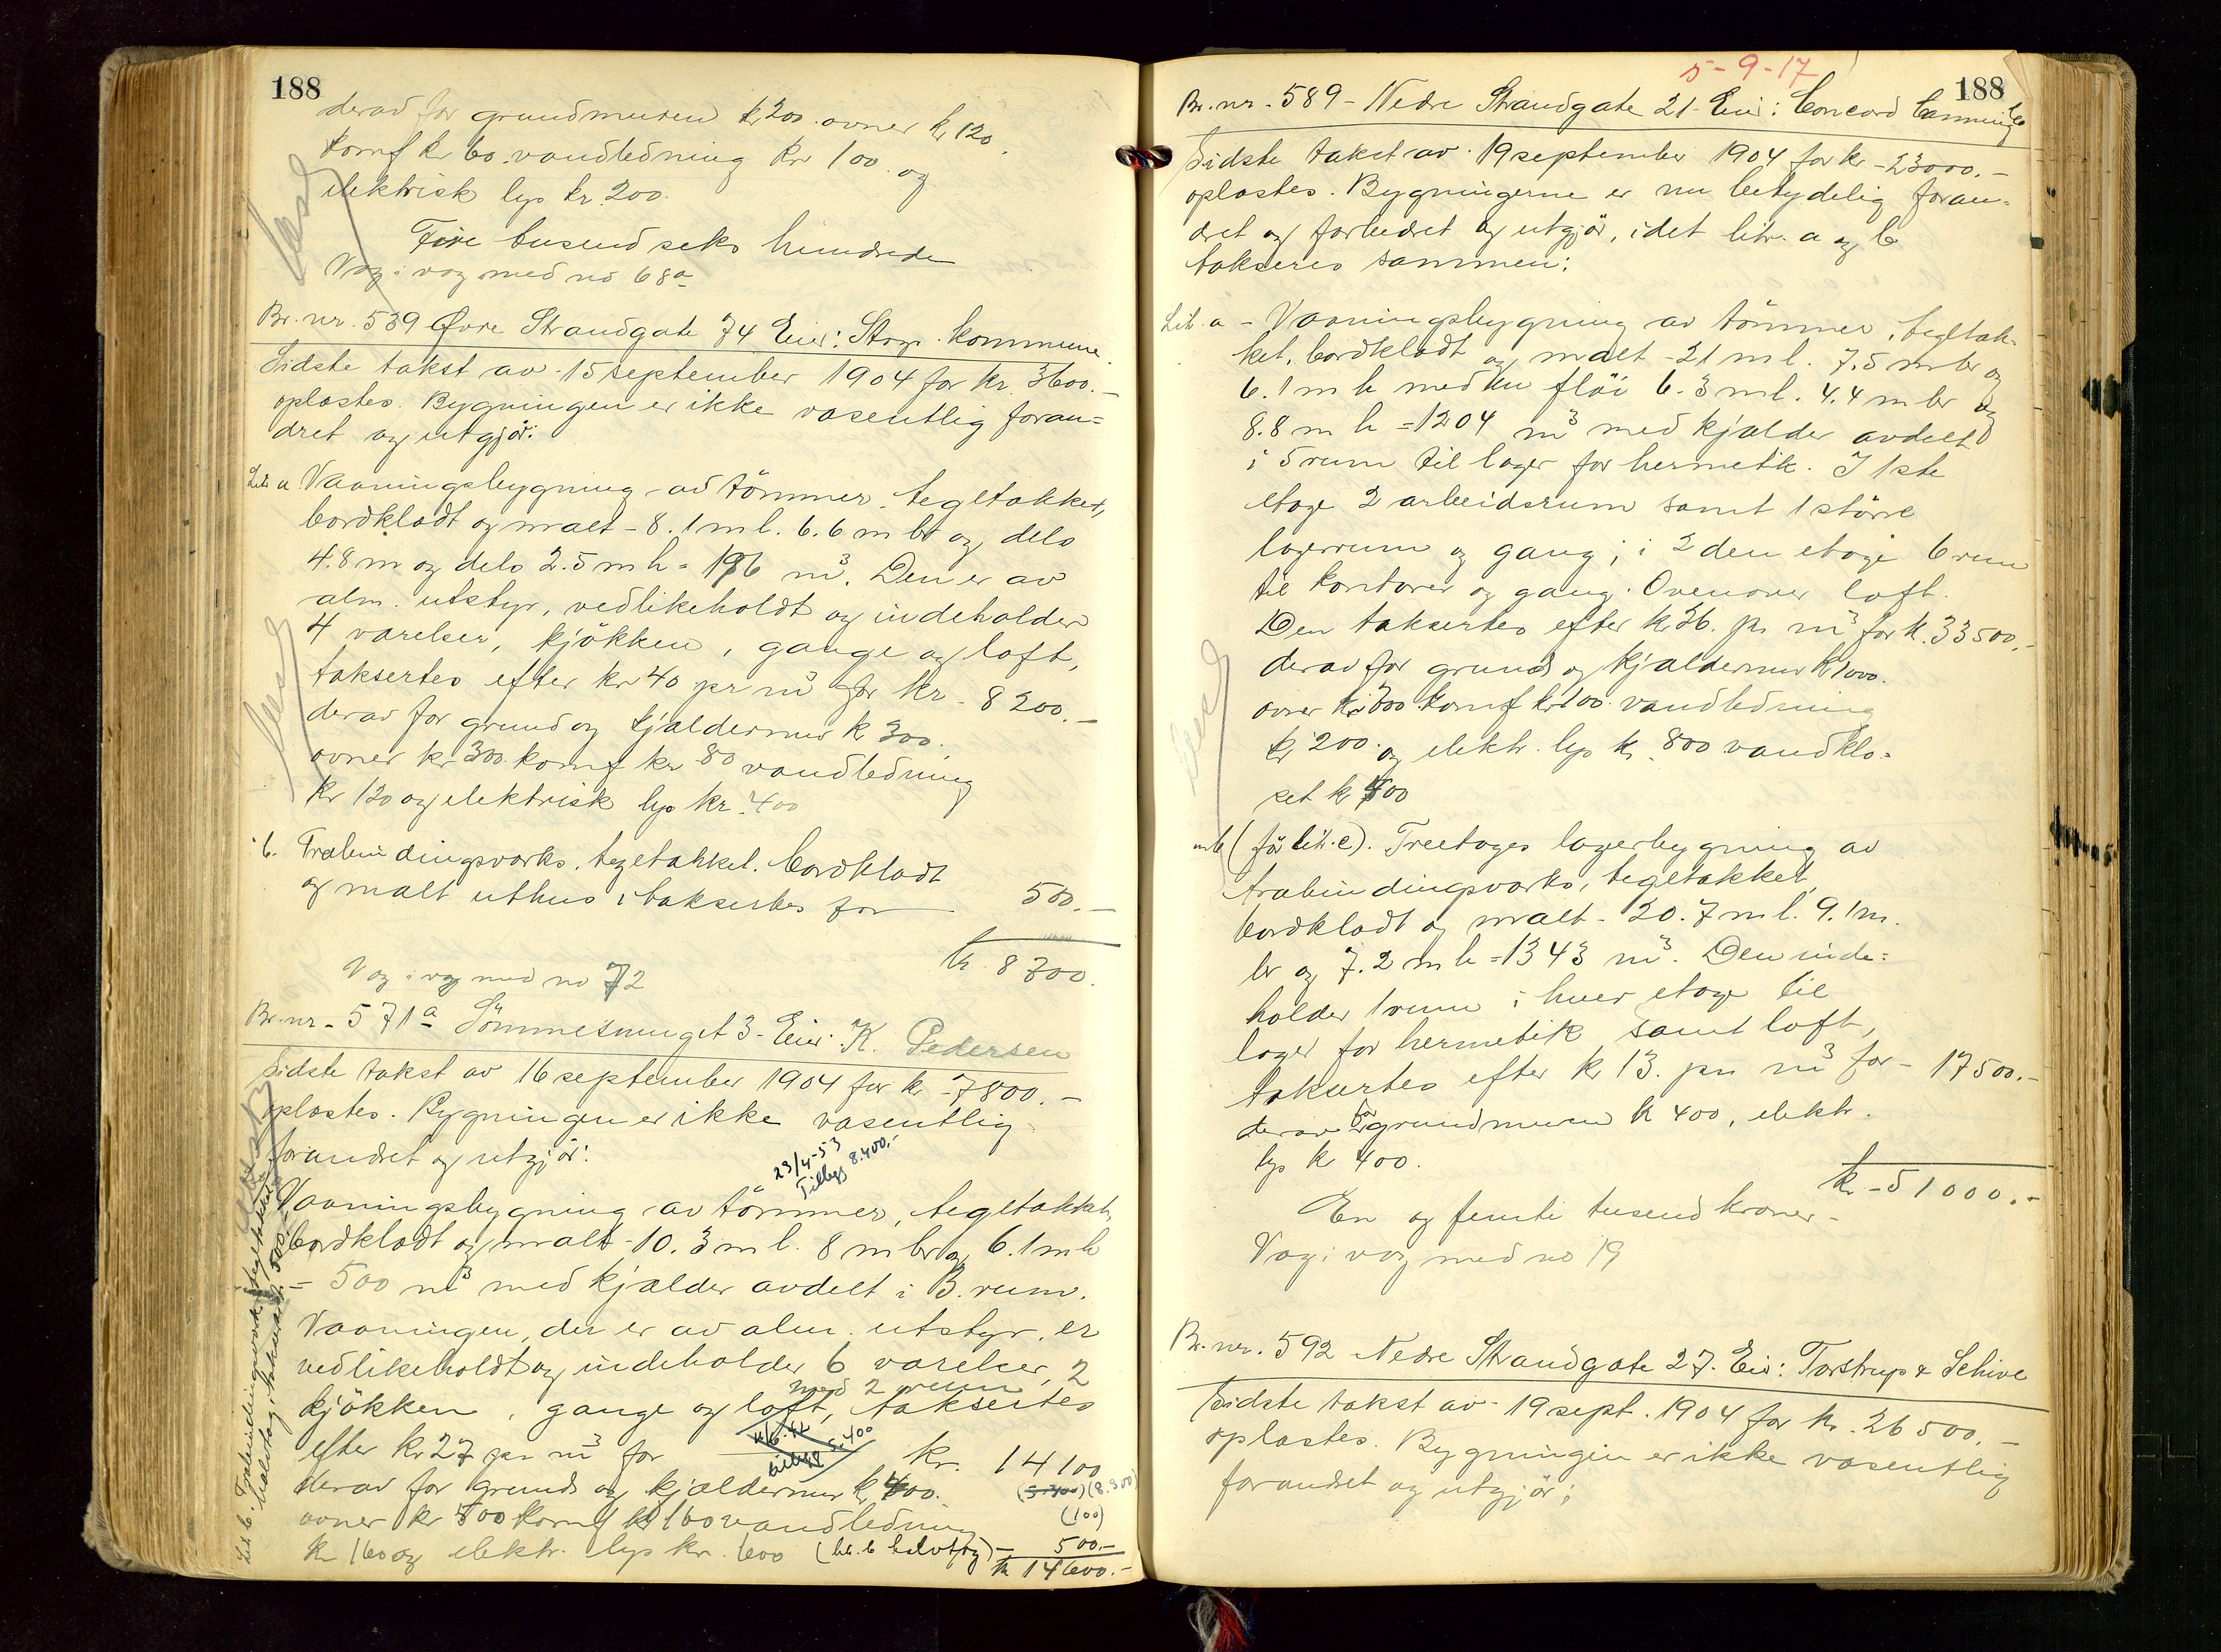 188
derav for grundmuren kr 200. ovner kr 120.
komf kr 60. vandledning kr 100. og
elektrisk lys kr. 200.
Fire tusend seks hundrede
Væg i væg med no 68a
Br. nr. 539 Øvre Strandgate 74 Eier: Stvgr. kommune.
Sidste takst av 15 september 1904 for kr. 3600.-
oplæstes. Bygningen er ikke væsentlig foran=
dret og utgjør:
Litr a Vaaningsbygning av tömmer, tegltækket,
bordklædt og malt - 8.1 m l. 6.6 m br og dels
4.8 m og dels 2.5 m h = 196 m³. Den er av
alm. utstyr, vedlikeholdt og indeholder
4 værelser, kjökken, gange og loft,
taksertes efter kr 40 pr m³ for kr. 8200.-
derav for grund og kjældermur kr 300.
ovner kr 300. komf kr 80 vandledning
kr 120 og elektrisk lys kr. 400
" b. Træbindingsværks, tegltækket, bordklædt
og malt uthus, taksertes for 500.-
kr. 8700.
Væg i væg med no 72
Br. nr. 571a Sömmesmuget 3 - Eier: K. Pedersen
Sidste takst av 16 september 1904 for kr - 7800.-
oplæstes. Bygningen er ikke væsentlig
forandret og utgjör:
23/4-53
Tillegg 8.400.-
Vaaningsbygning av tömmer, tegltækket,
bordklædt og malt - 10.3 m l. 8 m br og 6.1 m h
= 500 m³ med kjælder avdelt i 3. rum.
Vaaningen, der er av alm. utstyr, er
vedlikeholdt og indeholder 6 værelser, 2
kjökken, gange og loft med 2 rum, taksertes
efter kr 27 pr m³ for kr. 14100
tillegg 5.400
derav for grund og kjældermur kr 400. (5.400) (8.300)
ovner kr 500 komf kr 160 vandledning (100)
kr 160 og elektr. lys kr. 600 (litr. b halvtag) - 500.-
kr 14600.-
Litr b: Træbindingsværks, tegltækket
halvtag, taksert kr. 500.-
5-9-17
188
Br. nr. 589 - Nedre Strandgate 21. Eier: Concord Canning Co
Sidste takst av 19 september 1904 for kr - 23000.-
oplæstes. Bygningerne er nu betydelig foran=
dret og forbedret og utgjör, idet litr. a og b
takseres sammen:
Litr. a - Vaaningsbygning av tömmer, tegltæk-
ket, bordklædt og malt - 21 m l. 7.5 m br og
6.1 m h med en flöi 6.3 m l. 4.4 m br og
8.8 m h = 1204 m³ med kjælder avdelt
i 5 rum til lager for hermetik. I 1ste
etage 2 arbeidsrum samt 1 större
lagerrum og gang; i 2den etage 6 rum
til kontorer og gang. Ovenover loft.
Den taksertes efter kr 26. pr m³ for kr. 33500.-
derav for grund og kjældermur kr 1000.
ovner kr 700 komf kr 100. vandledning
kr 200. og elektr. lys kr. 800 vandklo=
set kr 400
" b (för litr. c). Treetages lagerbygning av
træbindingsværks, tegltækket,
bordklædt og malt - 20.7 m l. 9.1 m.
br og 7.2 m h = 1343 m³. Den inde=
holder 1 rum i hver etage til
lager for hermetik samt loft,
taksertes efter kr 13. pr m³ for - 17500.-
derav for grundmuren kr 400, elektr.
lys kr 400.
kr - 51000.-
En og femti tusend kroner -
Væg i væg med no 19
Br. nr. 592 - Nedre Strandgate 27. Eier: Tastrup & Schive
Sidste takst av 19 sept. 1904 for kr. 26500.-
oplæstes. Bygningen er ikke væsentlig
forandret og utgjör;